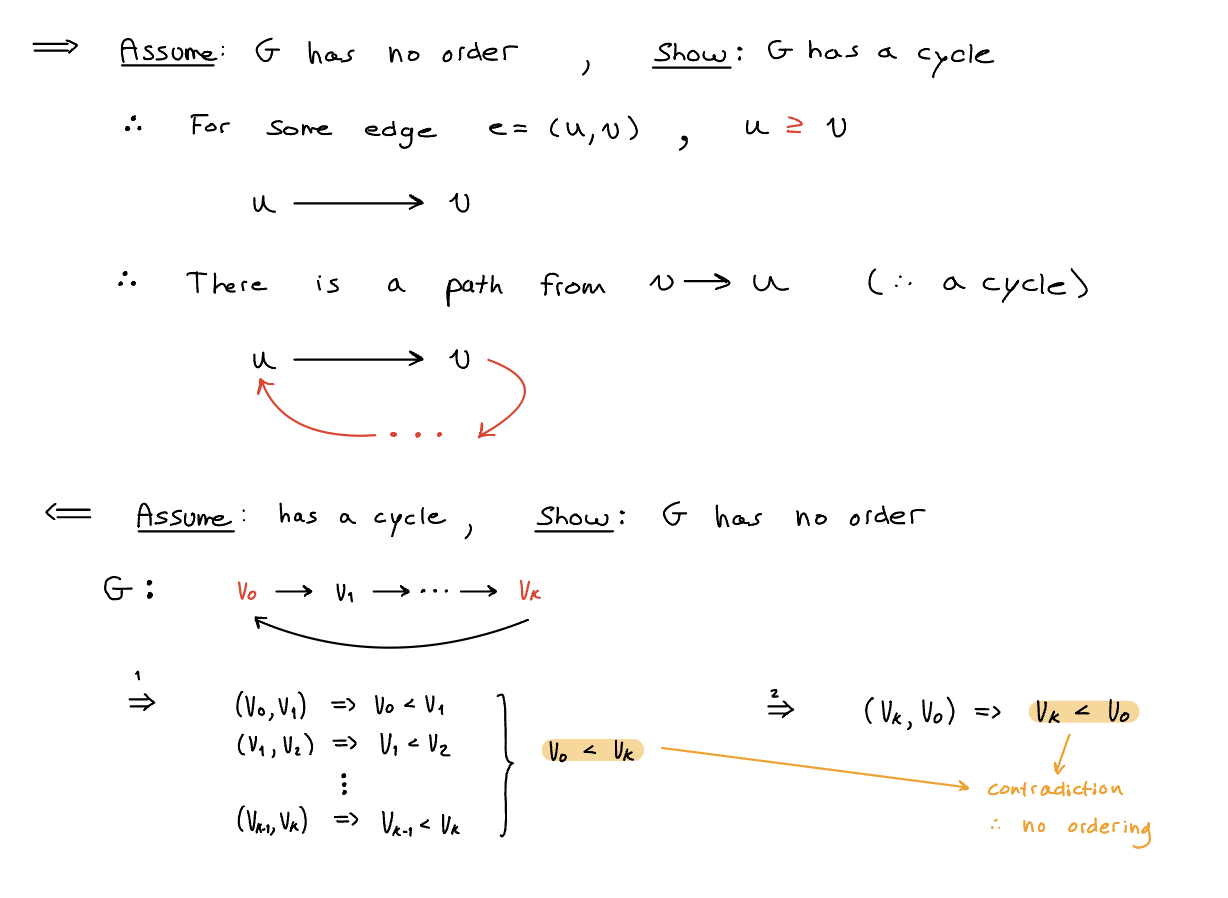 ⟹ Assume: G has no order , Show: G has a cycle
∴ For some edge e = (u, v) , u ≥ v
u ⟶ v
∴ There is a path from v ⟶ u (∴ a cycle)
u ⟶ v
...
⟸ Assume: has a cycle, Show: G has no order
G: V₀ → V₁ → ... → Vₖ
⇒¹ (V₀, V₁) => V₀ < V₁
(V₁, V₂) => V₁ < V₂
⋮
(Vₖ₋₁, Vₖ) => Vₖ₋₁ < Vₖ
} V₀ < Vₖ
⇒² (Vₖ, V₀) => Vₖ < V₀
contradiction
∴ no ordering